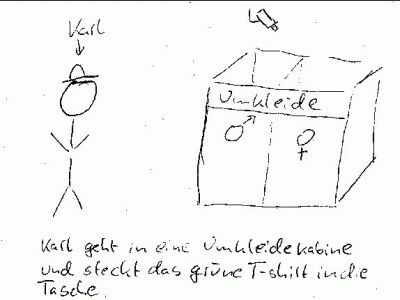 Karl
Umkleide
Karl geht in eine Umkleidekabine
und steckt das grüne T-shirt in die
Tasche.